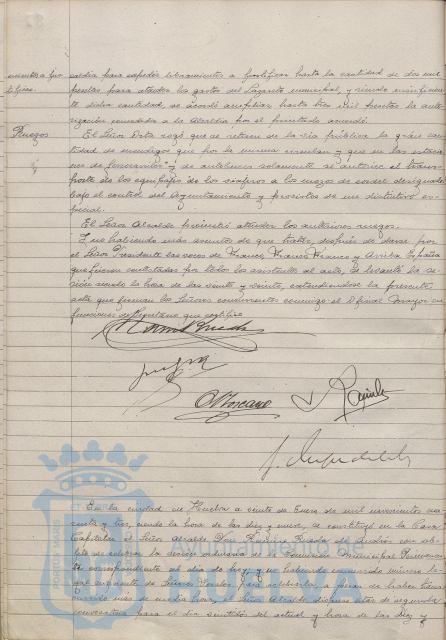 caldía para expedir libramientos a justificar hasta la cantidad de dos mil
pesetas para atender los gastos del Lazareto municipal, y siendo insuficien
te dicha cantidad, se acordó ampliar hasta tres mil pesetas la auto
rización concedida a la Alcaldía por el precitado acuerdo.
Ruegos
El Señor Orta rogó que se retiren de la vía pública la gran can
tidad de mendigos que por la misma circulan y que en las estacio
nes de ferrocarriles y de autobuses solamente se autorice el trans
porte de los equipajes de los viajeros a los mozos de cordel designados
bajo el control del Ayuntamiento y provistos de un distintivo es
pecial.
El Señor Alcalde prometió atender los anteriores ruegos.
Y no habiendo más asuntos de que tratar, después de darse por
el Señor Presidente las voces de Franco, Franco, Franco y Arriba España
que fueron contestadas por todos los asistentes al acto, se levantó la se
sión siendo la hora de las veinte y veinte, extendiéndose la presente
acta que firman los Señores concurrentes conmigo el Oficial Mayor en
funciones de Secretario que certifico
En la ciudad de Huelva a veinte de Enero de mil novecientos cua
renta y tres, siendo la hora de las diez y nueve, se constituyó en la Casa
Capitular el Señor Alcalde Don
de celebrar la sesión ordinaria de la Comisión Municipal Permanen
te correspondiente al día de hoy, y no habiendo concurrido número le
gal suficiente de Señores Vocales para celebrarla, a pesar de haber trans
currido más de media hora, el Señor Alcalde dispuso citar de segunda
convocatoria para el día veintidós del actual y hora de las diez y
PORTUS MARIS
Ayuntamiento de
HUELVA